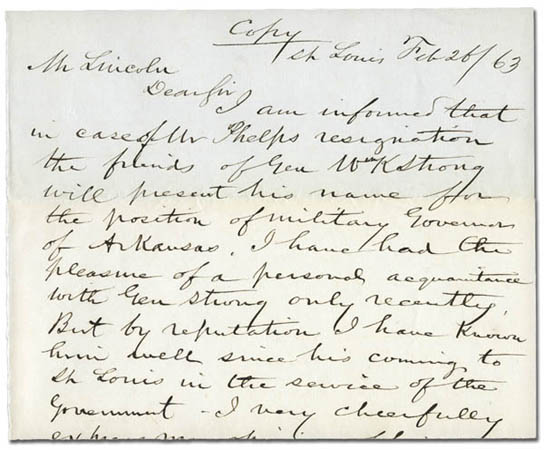 Copy
St Louis Feb 26/63
Mr Lincoln
Dear Sir
I am informed that
in case of Mr Phelps resignation
the friends of Gen Wm K Strong
will present his name for
the position of military Governor
of Arkansas. I have had the
pleasure of a personal acquaintance
with Gen Strong only recently,
But by reputation I have Known
him well since his coming to
St Louis in the service of the
Government - I very cheerfully